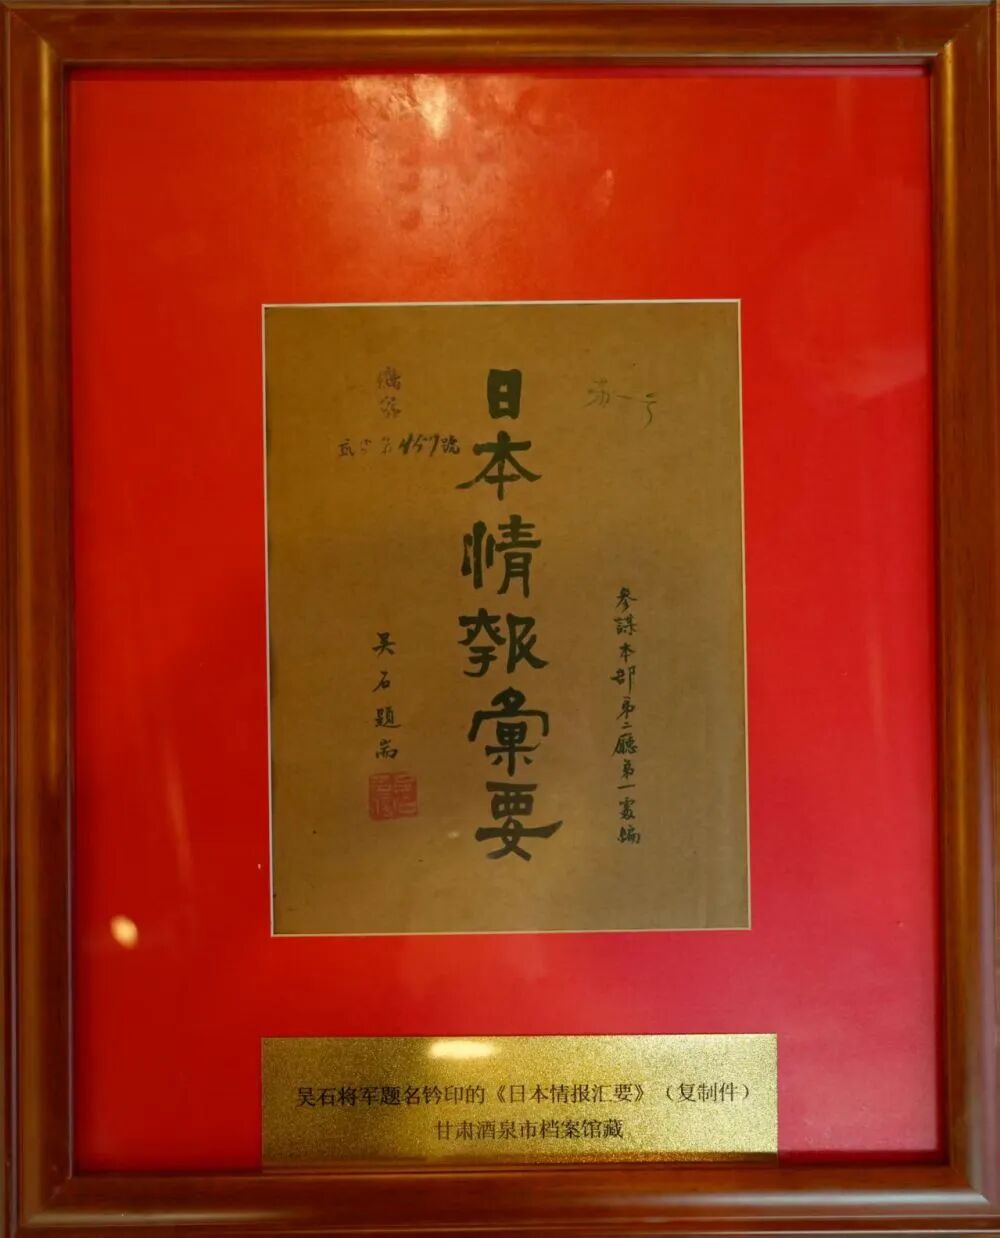 参謀本部第二廳第一處編
日本情報彙要
第457號
吴石題耑
吴石将军题名钤印的《日本情报汇要》（复制件）
甘肃酒泉市档案馆藏